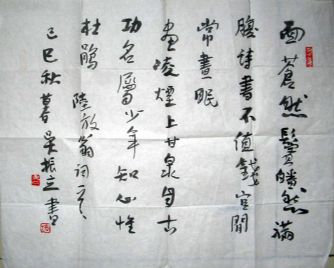 面蒼然鬢皤然滿
腹詩書不值錢官閒
常晝眠
畫凌煙上甘泉自古
功名屬少年知心惟
杜鵑 陸放翁詞一首
己巳秋暮吴振立書